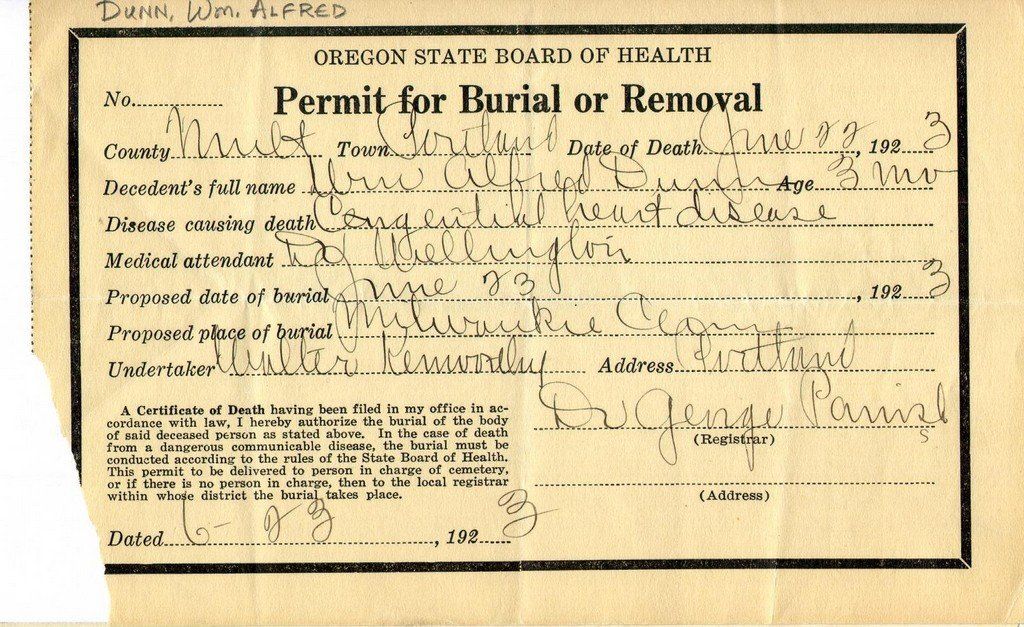 DUNN, Wm. ALFRED
OREGON STATE BOARD OF HEALTH
No.
Permit for Burial or Removal
County Mult Town Portland Date of Death June 22, 1923
Decedent's full name Wm Alfred Dunn Age 3 mo
Disease causing death Congenitial heart disease
Medical attendant Wellington
Proposed date of burial June 23, 1923
Proposed place of burial Milwaukie Cem
Undertaker Walter Kenworthy Address Portland
A Certificate of Death having been filed in my office in ac-
cordance with law, I hereby authorize the burial of the body
of said deceased person as stated above. In the case of death
from a dangerous communicable disease, the burial must be
conducted according to the rules of the State Board of Health.
This permit to be delivered to person in charge of cemetery,
or if there is no person in charge, then to the local registrar
within whose district the burial takes place.
Dated 6-23, 1923
Dr George Parrish
s
(Registrar)
(Address)